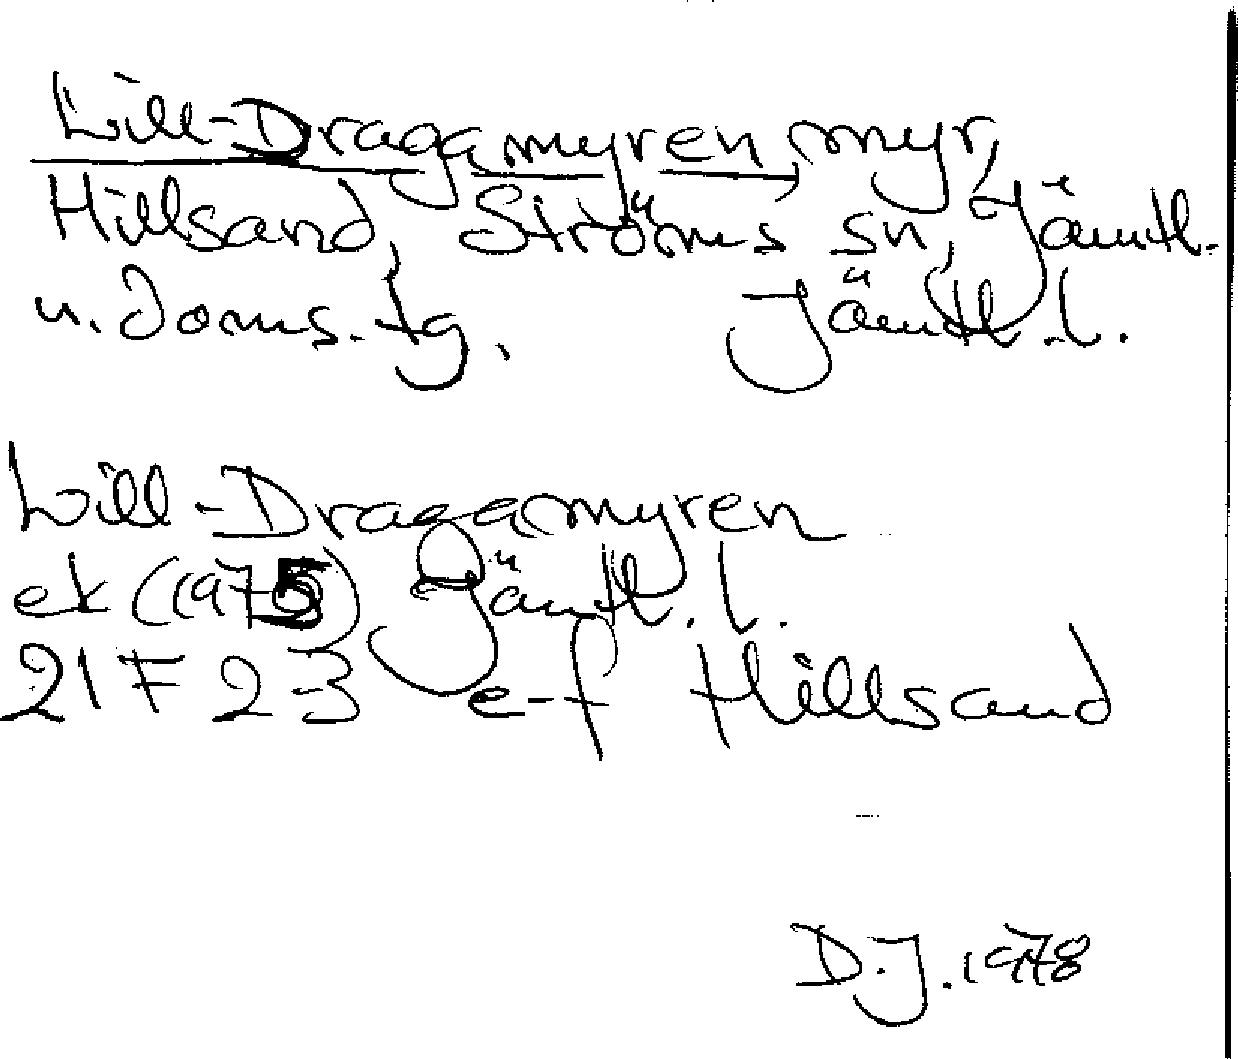 Lill-Dragamyren, myr,
Hillsand, Ströms sn, Jämtl.
n. doms. tg, Jämtl. l.
Lill-Dragamyren
ek (1975) Jämtl. l.
21 F 2-3 e-f Hillsand
D.J. 1978